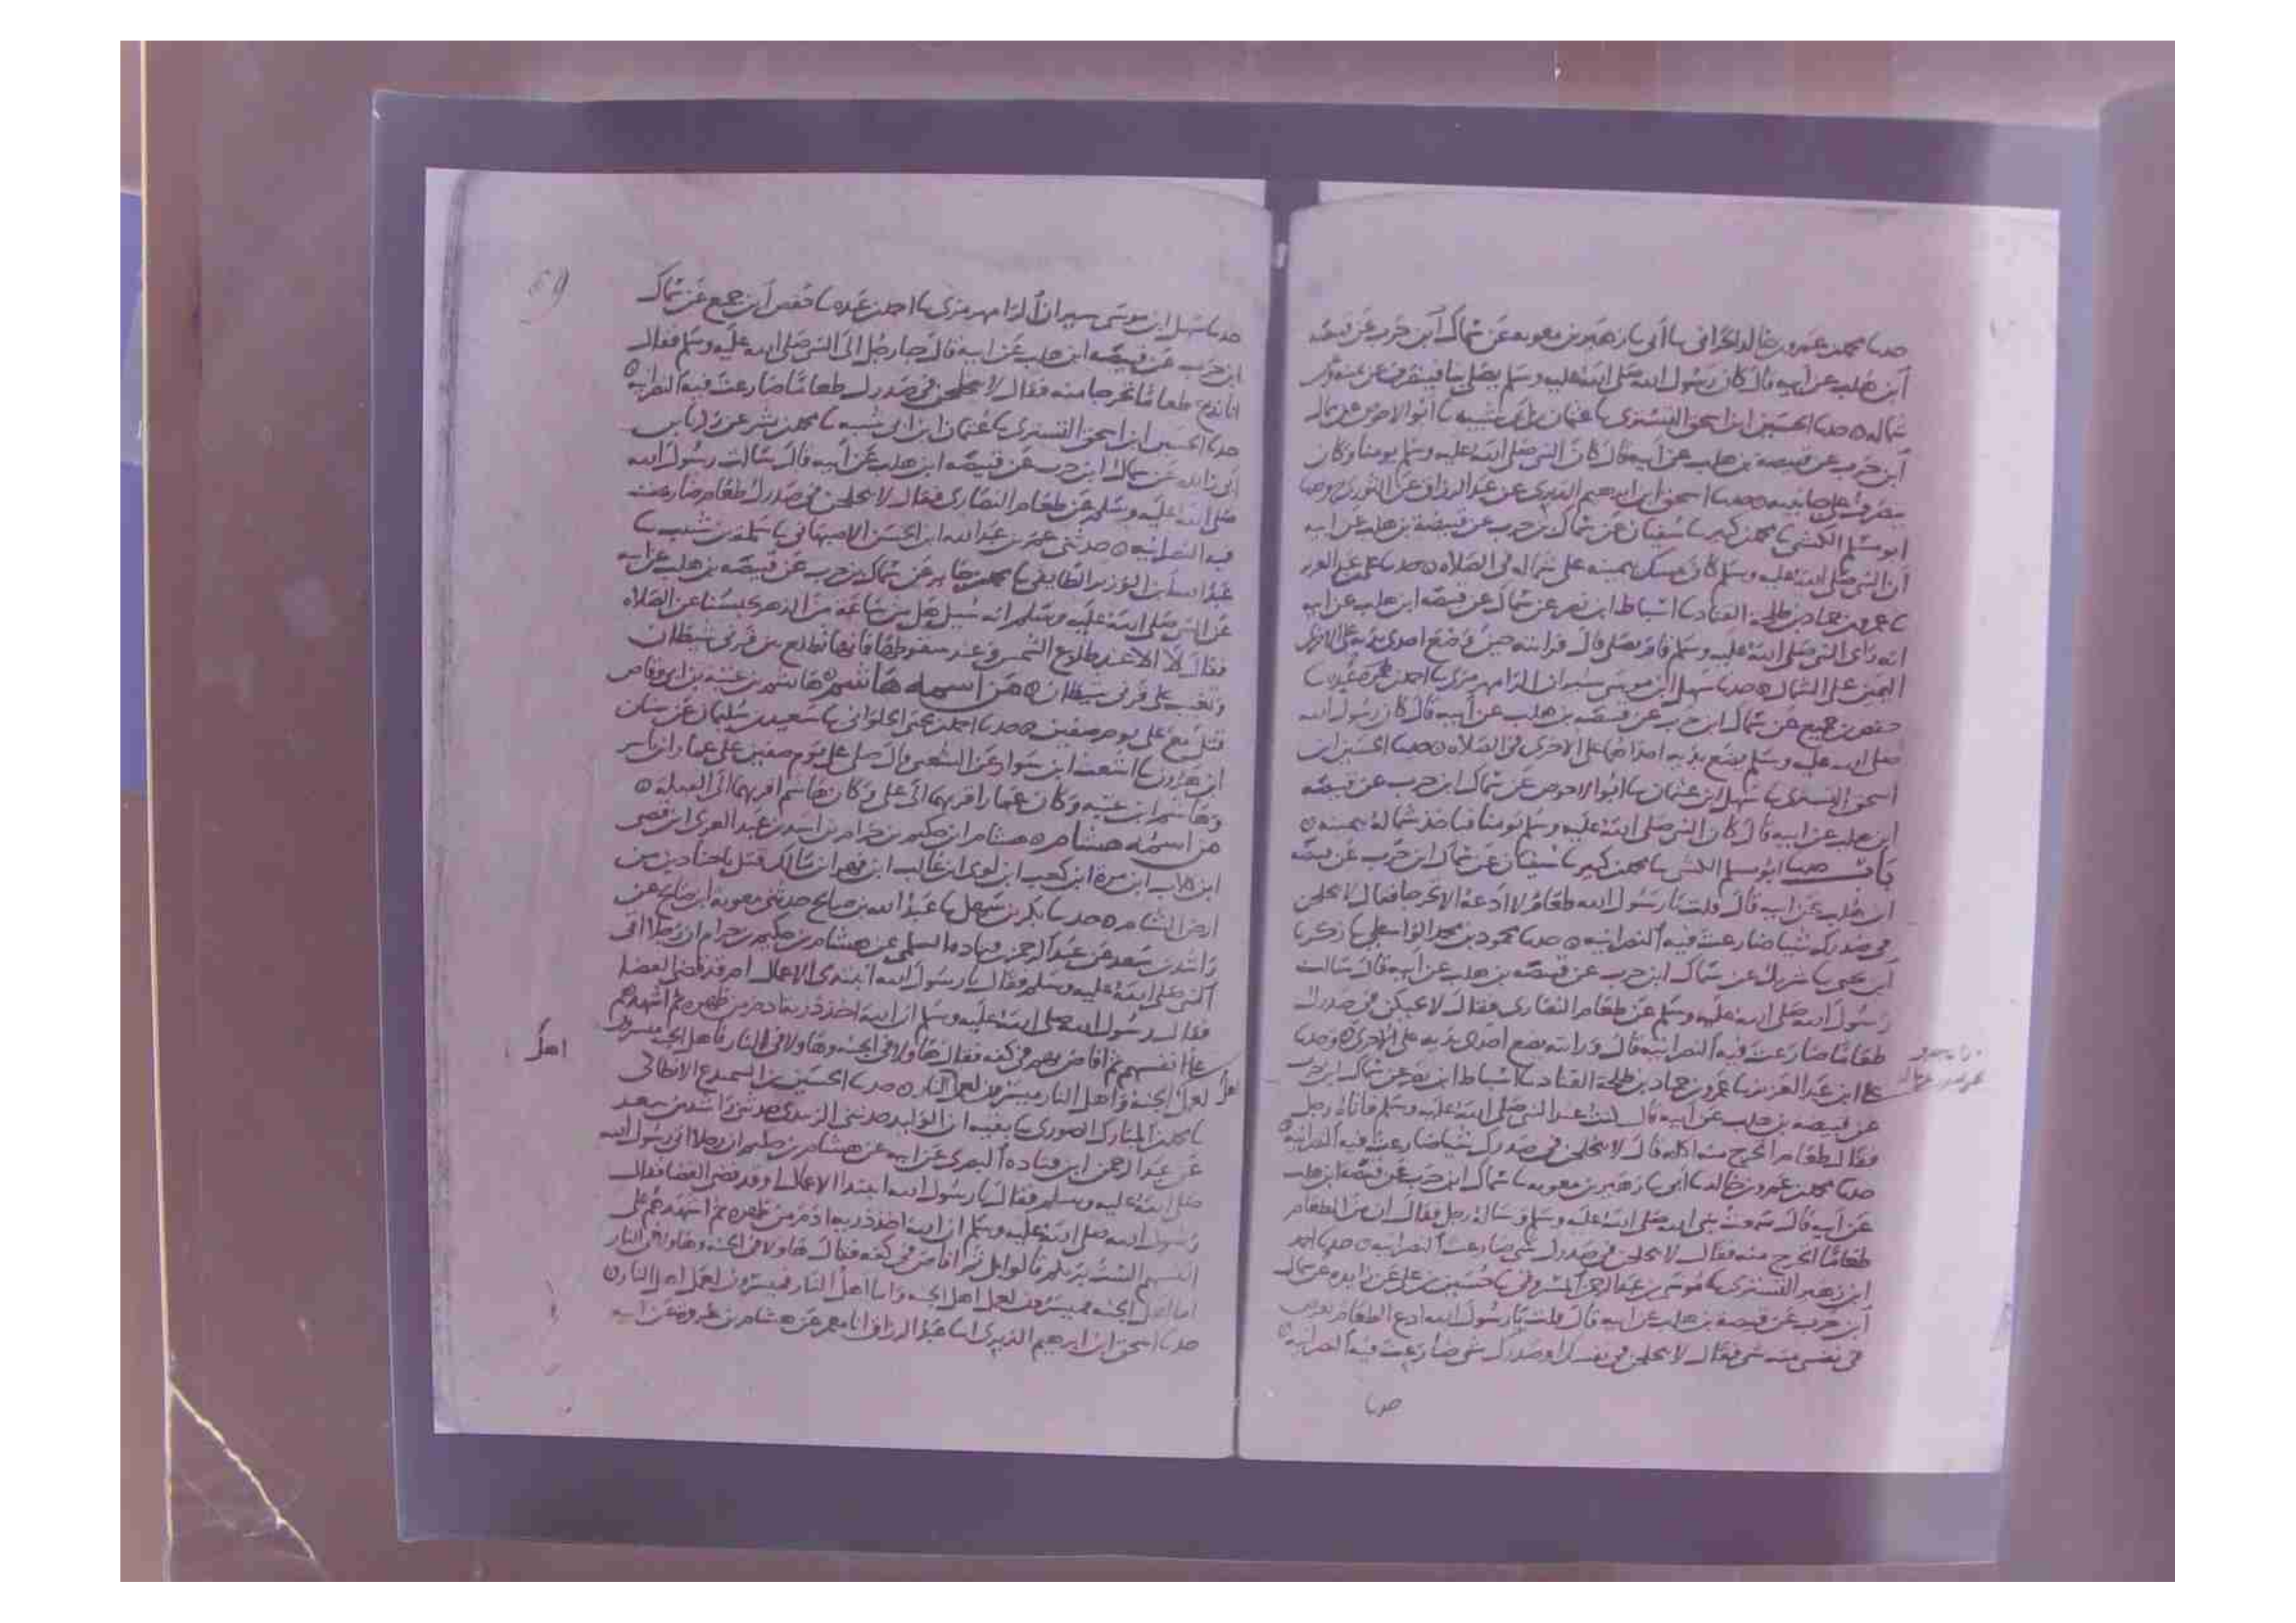 حدثنا محمد بن عمرو بن خالد الحراني ثنا أبي ثنا زهير بن معوية عن سماك ابن حرب عن قبيصة
ابن هلب عن أبيه قال كان رسول الله صلى الله عليه وسلم يصلي بنا فينصرف عن يمينه وعن
شماله حدثنا الحسين ابن اسحق التستري ثنا عثمان بن أبي شيبه ثنا أبو الاحوص عن سماك
ابن حرب عن قبيصة بن هلب عن أبيه قال كان النبي صلى الله عليه وسلم يومنا وكان
ينصرف على جانبيه حدثنا اسحق ابن ابرهيم الدبري عن عبد الرزاق عن الثوري ح وحدثنا
ابو مسلم الكشي ثنا محمد بن كثير ثنا سفيان عن سماك بن حرب عن قبيصة بن هلب عن ابيه
ان النبي صلى الله عليه وسلم كان يمسك بيمينه على شماله في الصلاه حدثنا علي بن عبد العزيز
ثنا عمرو بن حماد بن طلحة القناد ثنا اسباط ابن نصر عن سماك عن قبيصه ابن هلب عن ابيه
انه راى النبي صلى الله عليه وسلم قام يصلي قال فرايته حين وضع احدى يديه على الاخرى
اليمين على الشمال حدثنا سهل ابن موسى شيران الرامهرمزي ثنا احمد بن عبده ثنا
حفص بن جميع عن سماك ابن حرب عن قبيصه بن هلب عن أبيه قال كان رسول الله
صلى الله عليه وسلم يضع يديه احداهما على الاخرى في الصلاه حدثنا الحسين ابن
اسحق التستري ثنا سهل ابن عثمان ثنا ابو الاحوص عن سماك ابن حرب عن قبيصه
ابن هلب عن ابيه قال كان النبي صلى الله عليه وسلم يومنا فياخذ شماله بيمينه
باب حدثنا ابو مسلم الكشي ثنا محمد بن كثير ثنا سفيان عن سماك ابن حرب عن قبيصه
ابن هلب عن ابيه قال قلت يا رسول الله طعام لا ادعه الا تحرجا فقال لا يختلجن
في صدرك شيا ضارعت فيه النصرانيه حدثنا محمود بن محمد الواسطي ثنا زكريا
ابن يحيى ثنا شريك عن سماك ابن حرب عن قبيصه بن هلب عن ابيه قال سالت
رسول الله صلى الله عليه وسلم عن طعام النصارى فقال لا يحيكن في صدرك
طعاما ضارعت فيه النصرانيه قال ورايته يضع احدى يديه على الاخرى وحدثنا
علي ابن عبد العزيز ثنا عمرو بن حماد بن طلحة القناد ثنا اسباط ابن نصر عن سماك ابن حرب
عن قبيصه بن هلب عن ابيه قال كنت عند النبي صلى الله عليه وسلم فاتاه رجل
فقال طعام اتحرج منه اكله قال لا يختلجن في صدرك شيا ضارعت فيه النصرانيه
حدثنا محمد بن عمرو بن خالد ثنا أبي ثنا زهير بن معويه ثنا سماك ابن حرب عن قبيصه ابن هلب
عن أبيه قال سمعت نبي الله صلى الله عليه وسلم وساله رجل فقال ان من الطعام
طعاما اتحرج منه فقال لا يختلجن في صدرك شي ضارعت النصرانيه حدثنا احمد
ابن زهير التستري ثنا موسى بن عبد الرحمن المسروقي ثنا حسين بن علي عن زايده عن سماك
ابن حرب عن قبيصه بن هلب عن ابيه قال قلت يا رسول الله ادع الطعام
في نفسي منه شي فقال لا يختلجن في نفسك او صدرك شي ضارعت فيه النصرانيه
حدثنا
69
حدثنا سهل ابن موسى شيران الرامهرمزي ثنا احمد بن عبده ثنا حفص ابن جميع عن سماك
ابن حرب عن قبيصه ابن هلب عن ابيه قال جا رجل الى النبي صلى الله عليه وسلم فقال
انا ندع طعاما تحرجا منه فقال لا يختلجن في صدرك طعاما ضارعت فيه النصرانيه
حدثنا الحسين ابن اسحق التستري ثنا عثمان ابن ابي شيبه ثنا محمد بن بشر عن زكريا بن
أبي زايده عن سماك ابن حرب عن قبيصه ابن هلب عن أبيه قال سالت رسول الله
صلى الله عليه وسلم عن طعام النصارى فقال لا يختلجن في صدرك طعام ضارعت
فيه النصرانيه حدثني عمر بن عبد الله ابن الحسن الاصبهاني ثنا سلمة بن شبيب ثنا
عبد الله ابن الوزير الطايفي ثنا محمد بن جابر عن سماك بن حرب عن قبيصه بن هلب عن ابيه
عن النبي صلى الله عليه وسلم انه سيل هل من ساعة من الدهر عن الصلاه
فقال لا الا عند طلوع الشمس وعند سقوطها فانها تطلع بين قرني شيطان
وتغيب على قرني شيطان من اسمه هاشم هاشم بن عتبه بن ابي وقاص
قتل مع علي يوم صفين حدثنا احمد بن يحيى الحلواني ثنا سعيد بن سليمان عن سنان
ابن هارون ثنا اشعث ابن سوار عن الشعبي قال صلى علي يوم صفين على عمار ابن ياسر
وهاشم ابن عتبه وكان عمار اقربهما الى علي وكان هاشم اقربهما الى القبله
من اسمه هشام هشام ابن حكيم بن حزام بن اسد بن عبد العزى ابن قصي
ابن كلاب ابن مرة ابن كعب ابن لوي ابن غالب ابن فهر ابن مالك قتل باجنادين من
ارض الشام حدثنا بكر بن سهل ثنا عبد الله بن صالح حدثني معوية ابن صالح عن
راشد بن سعد عن عبد الرحمن بن قتادة السلمي عن هشام بن حكيم بن حزام ان رجلا اتى
النبي صلى الله عليه وسلم فقال يا رسول الله ابتدئ الاعمال ام قد قضي القضا
فقال رسول الله صلى الله عليه وسلم ان الله اخذ ذرية ادم من ظهره ثم اشهدهم
على انفسهم ثم افاض بهم في كفه فقال هاولا في الجنه وهاولا في النار فاهل الجنه ميسرون
اهل
لعمل الجنة واهل النار ميسرون لعمل النار حدثنا الحسين بن السميدع الانطاكي
ثنا محمد بن المبارك الصوري ثنا بقيه ابن الوليد حدثني الزبيدي حدثني راشد بن سعد
عن عبد الرحمن ابن قتاده البصري عن ابيه عن هشام بن حكيم ان رجلا اتى رسول الله
صلى الله عليه وسلم فقال يا رسول الله ابتدا الاعمال او قد قضي القضا فقال
رسول الله صلى الله عليه وسلم ان الله اخذ ذرية ادم من ظهره ثم اشهدهم على
انفسهم الست بربكم قالوا بلى ثم افاض في كفه فقال هاولا في الجنه وهاولا في النار
اما اهل الجنه فميسرون لعمل اهل الجنه واما اهل النار فميسرون لعمل اهل النار
حدثنا اسحق ابن ابرهيم الدبري انا عبد الرزاق انا معمر عن هشام بن عروه عن ابيه